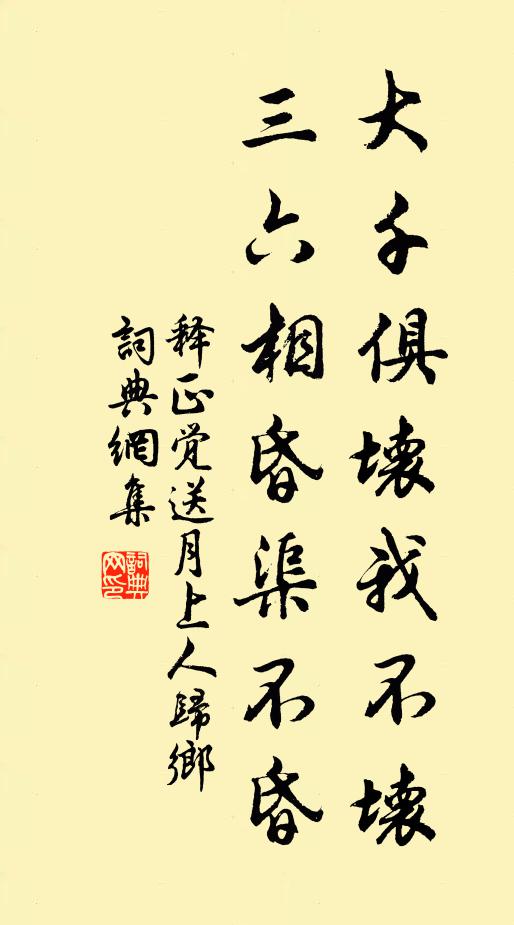 大千俱壞我不壞
三六相昏渠不昏
释正觉送月上人歸鄉
詞典網集
詞典网印